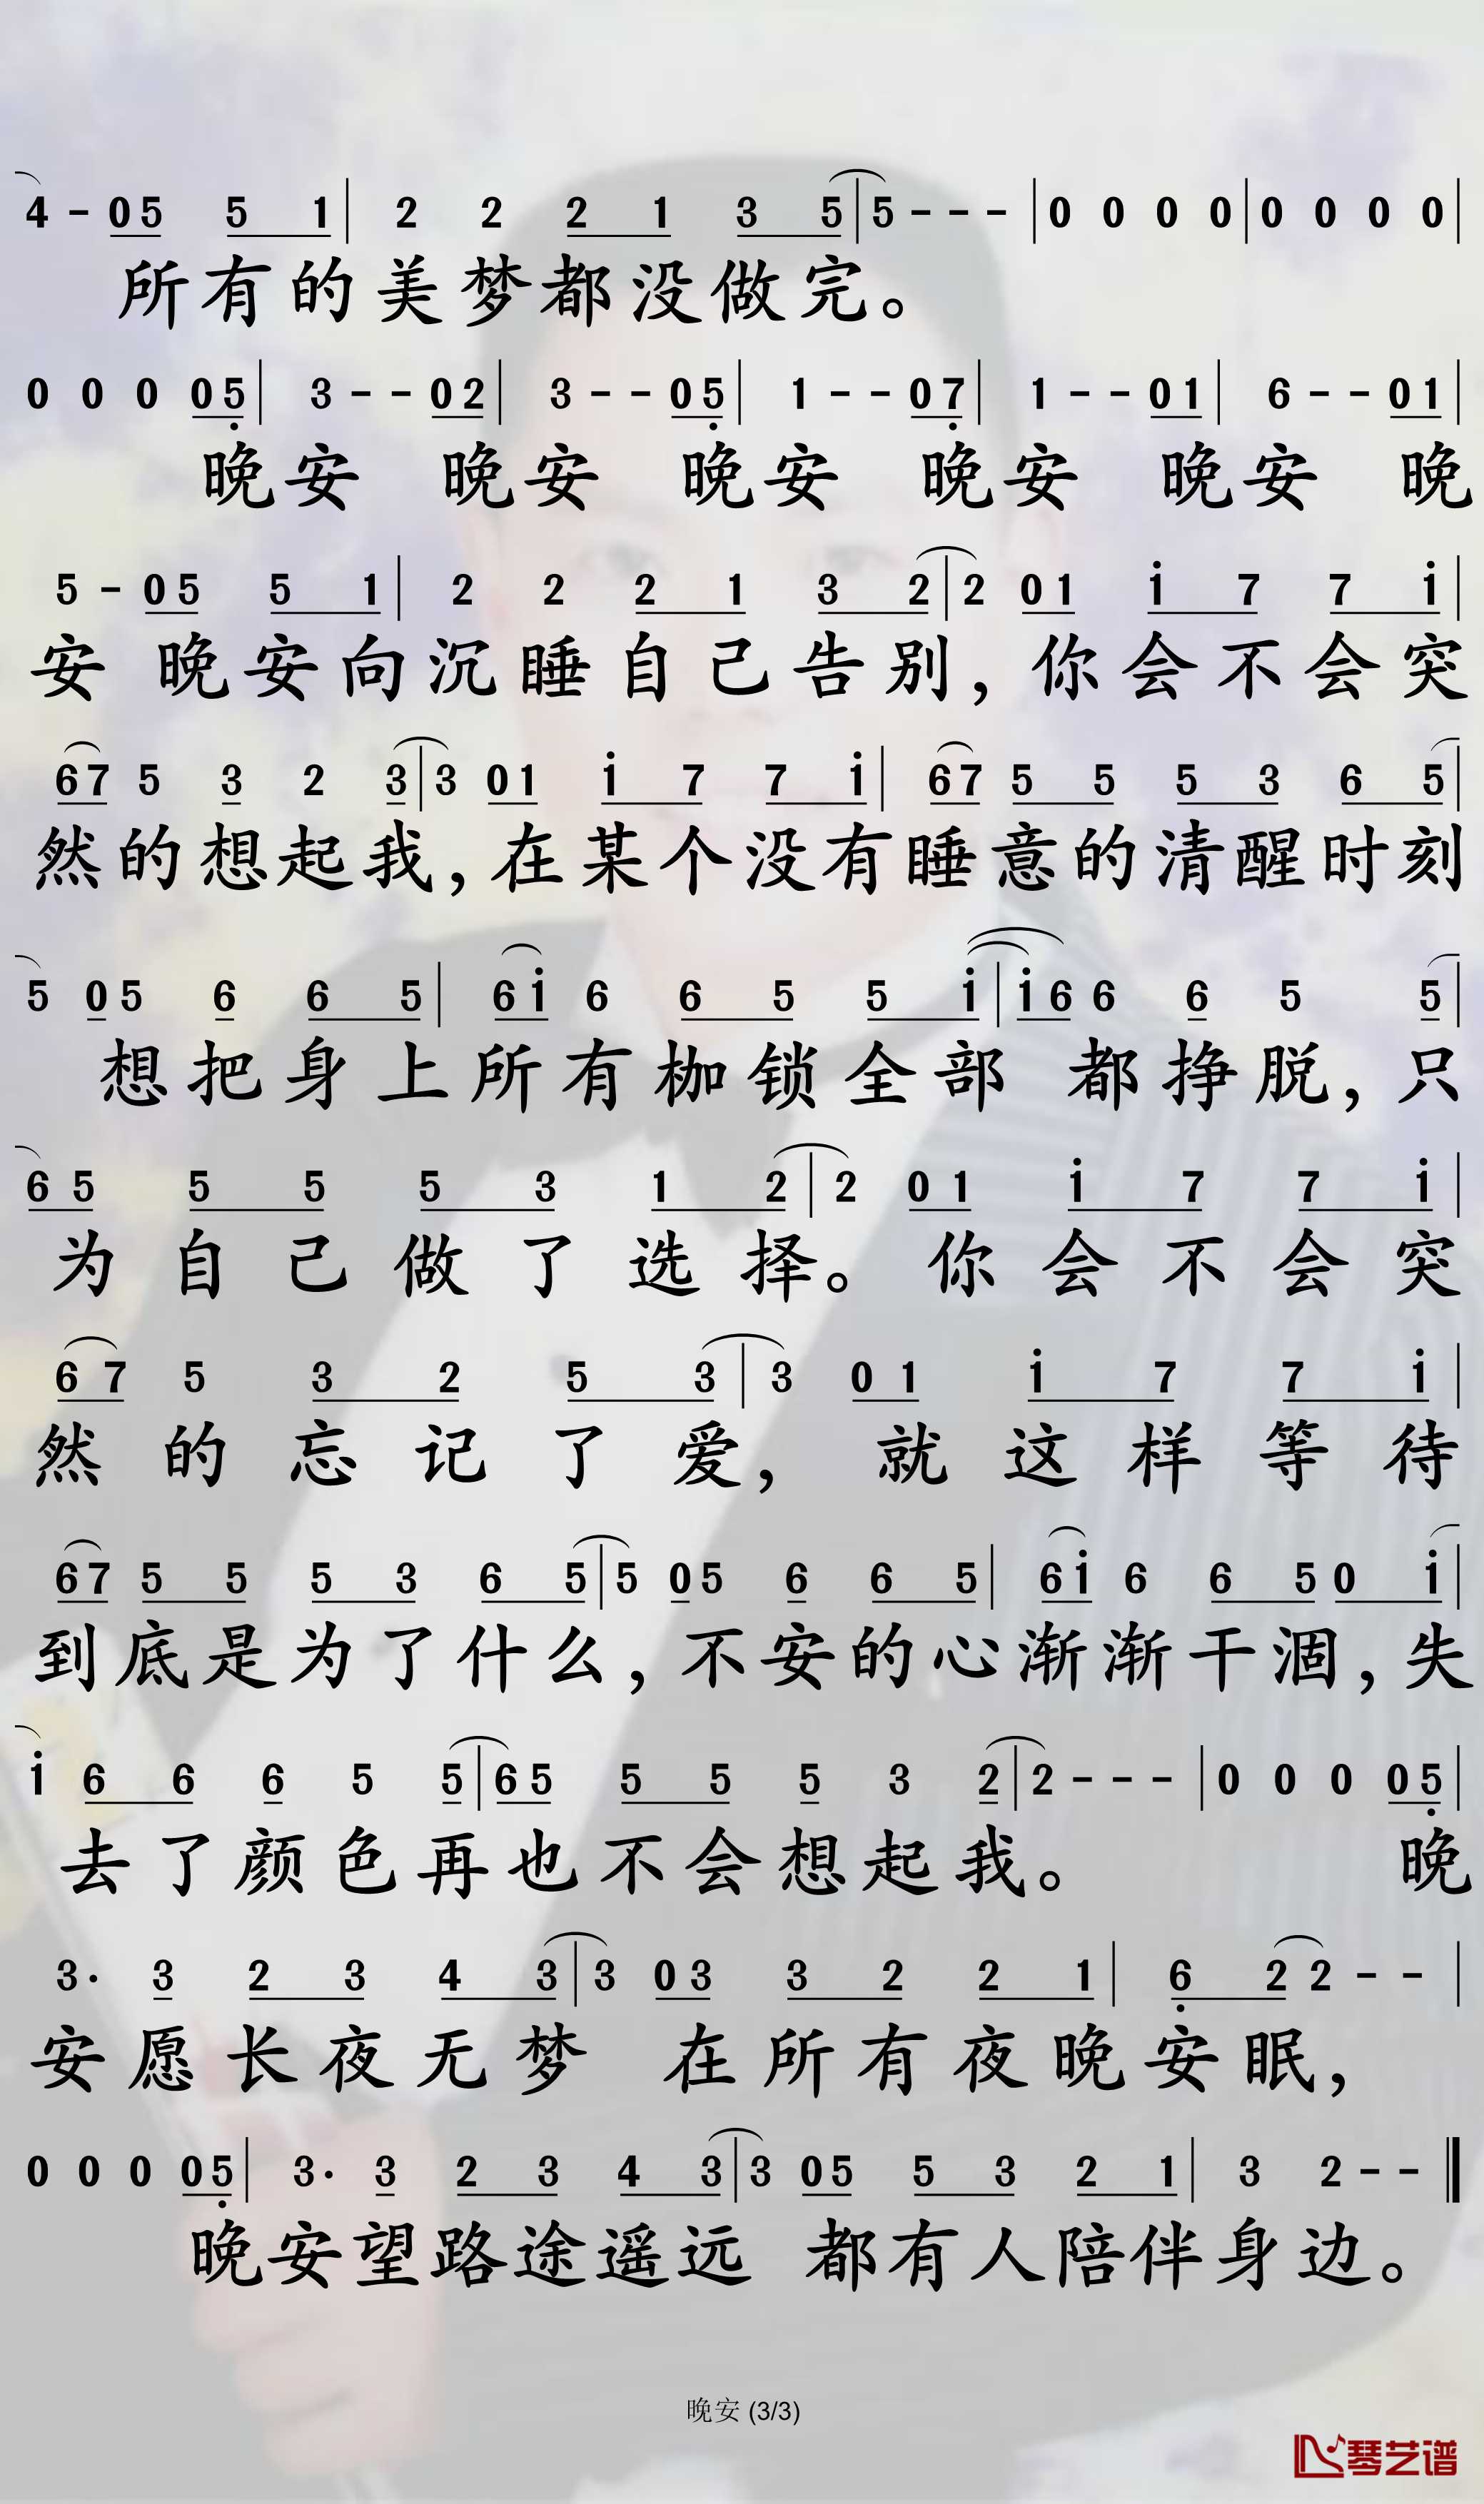 4 - 0 5 5 1 | 2 2 2 1 3 5 | 5 - - - | 0 0 0 0 | 0 0 0 0 |
所有的美梦都没做完。
0 0 0 0 5̣ | 3 - - 0 2 | 3 - - 0 5̣ | 1 - - 0 7̣ | 1 - - 0 1 | 6 - - 0 1 |
晚安 晚安 晚安 晚安 晚安 晚
5 - 0 5 5 1 | 2 2 2 1 3 2 | 2 0 1 1̇ 7 7 1̇ |
安 晚安向沉睡自己告别，你会不会突
6 7 5 3 2 3 | 3 0 1 1̇ 7 7 1̇ | 6 7 5 5 5 3 6 5 |
然的想起我，在某个没有睡意的清醒时刻
5 0 5 6 6 5 | 6 1̇ 6 6 5 5 1̇ | 1̇ 6 6 6 5 5 |
想把身上所有枷锁全部 都挣脱，只
6 5 5 5 5 3 1 2 | 2 0 1 1̇ 7 7 1̇ |
为自己做了选择。你会不会突
6 7 5 3 2 5 3 | 3 0 1 1̇ 7 7 1̇ |
然的忘记了爱，就这样等待
6 7 5 5 5 3 6 5 | 5 0 5 6 6 5 | 6 1̇ 6 6 5 0 1̇ |
到底是为了什么，不安的心渐渐干涸，失
1̇ 6 6 6 5 5 | 6 5 5 5 5 3 2 | 2 - - - | 0 0 0 0 5̣ |
去了颜色再也不会想起我。 晚
3· 3 2 3 4 3 | 3 0 3 3 2 2 1 | 6̣ 2 2 - - |
安愿长夜无梦 在所有夜晚安眠，
0 0 0 0 5̣ | 3· 3 2 3 4 3 | 3 0 5 5 3 2 1 | 3 2 - - ‖
晚安望路途遥远 都有人陪伴身边。
晚安 (3/3)
琴艺谱